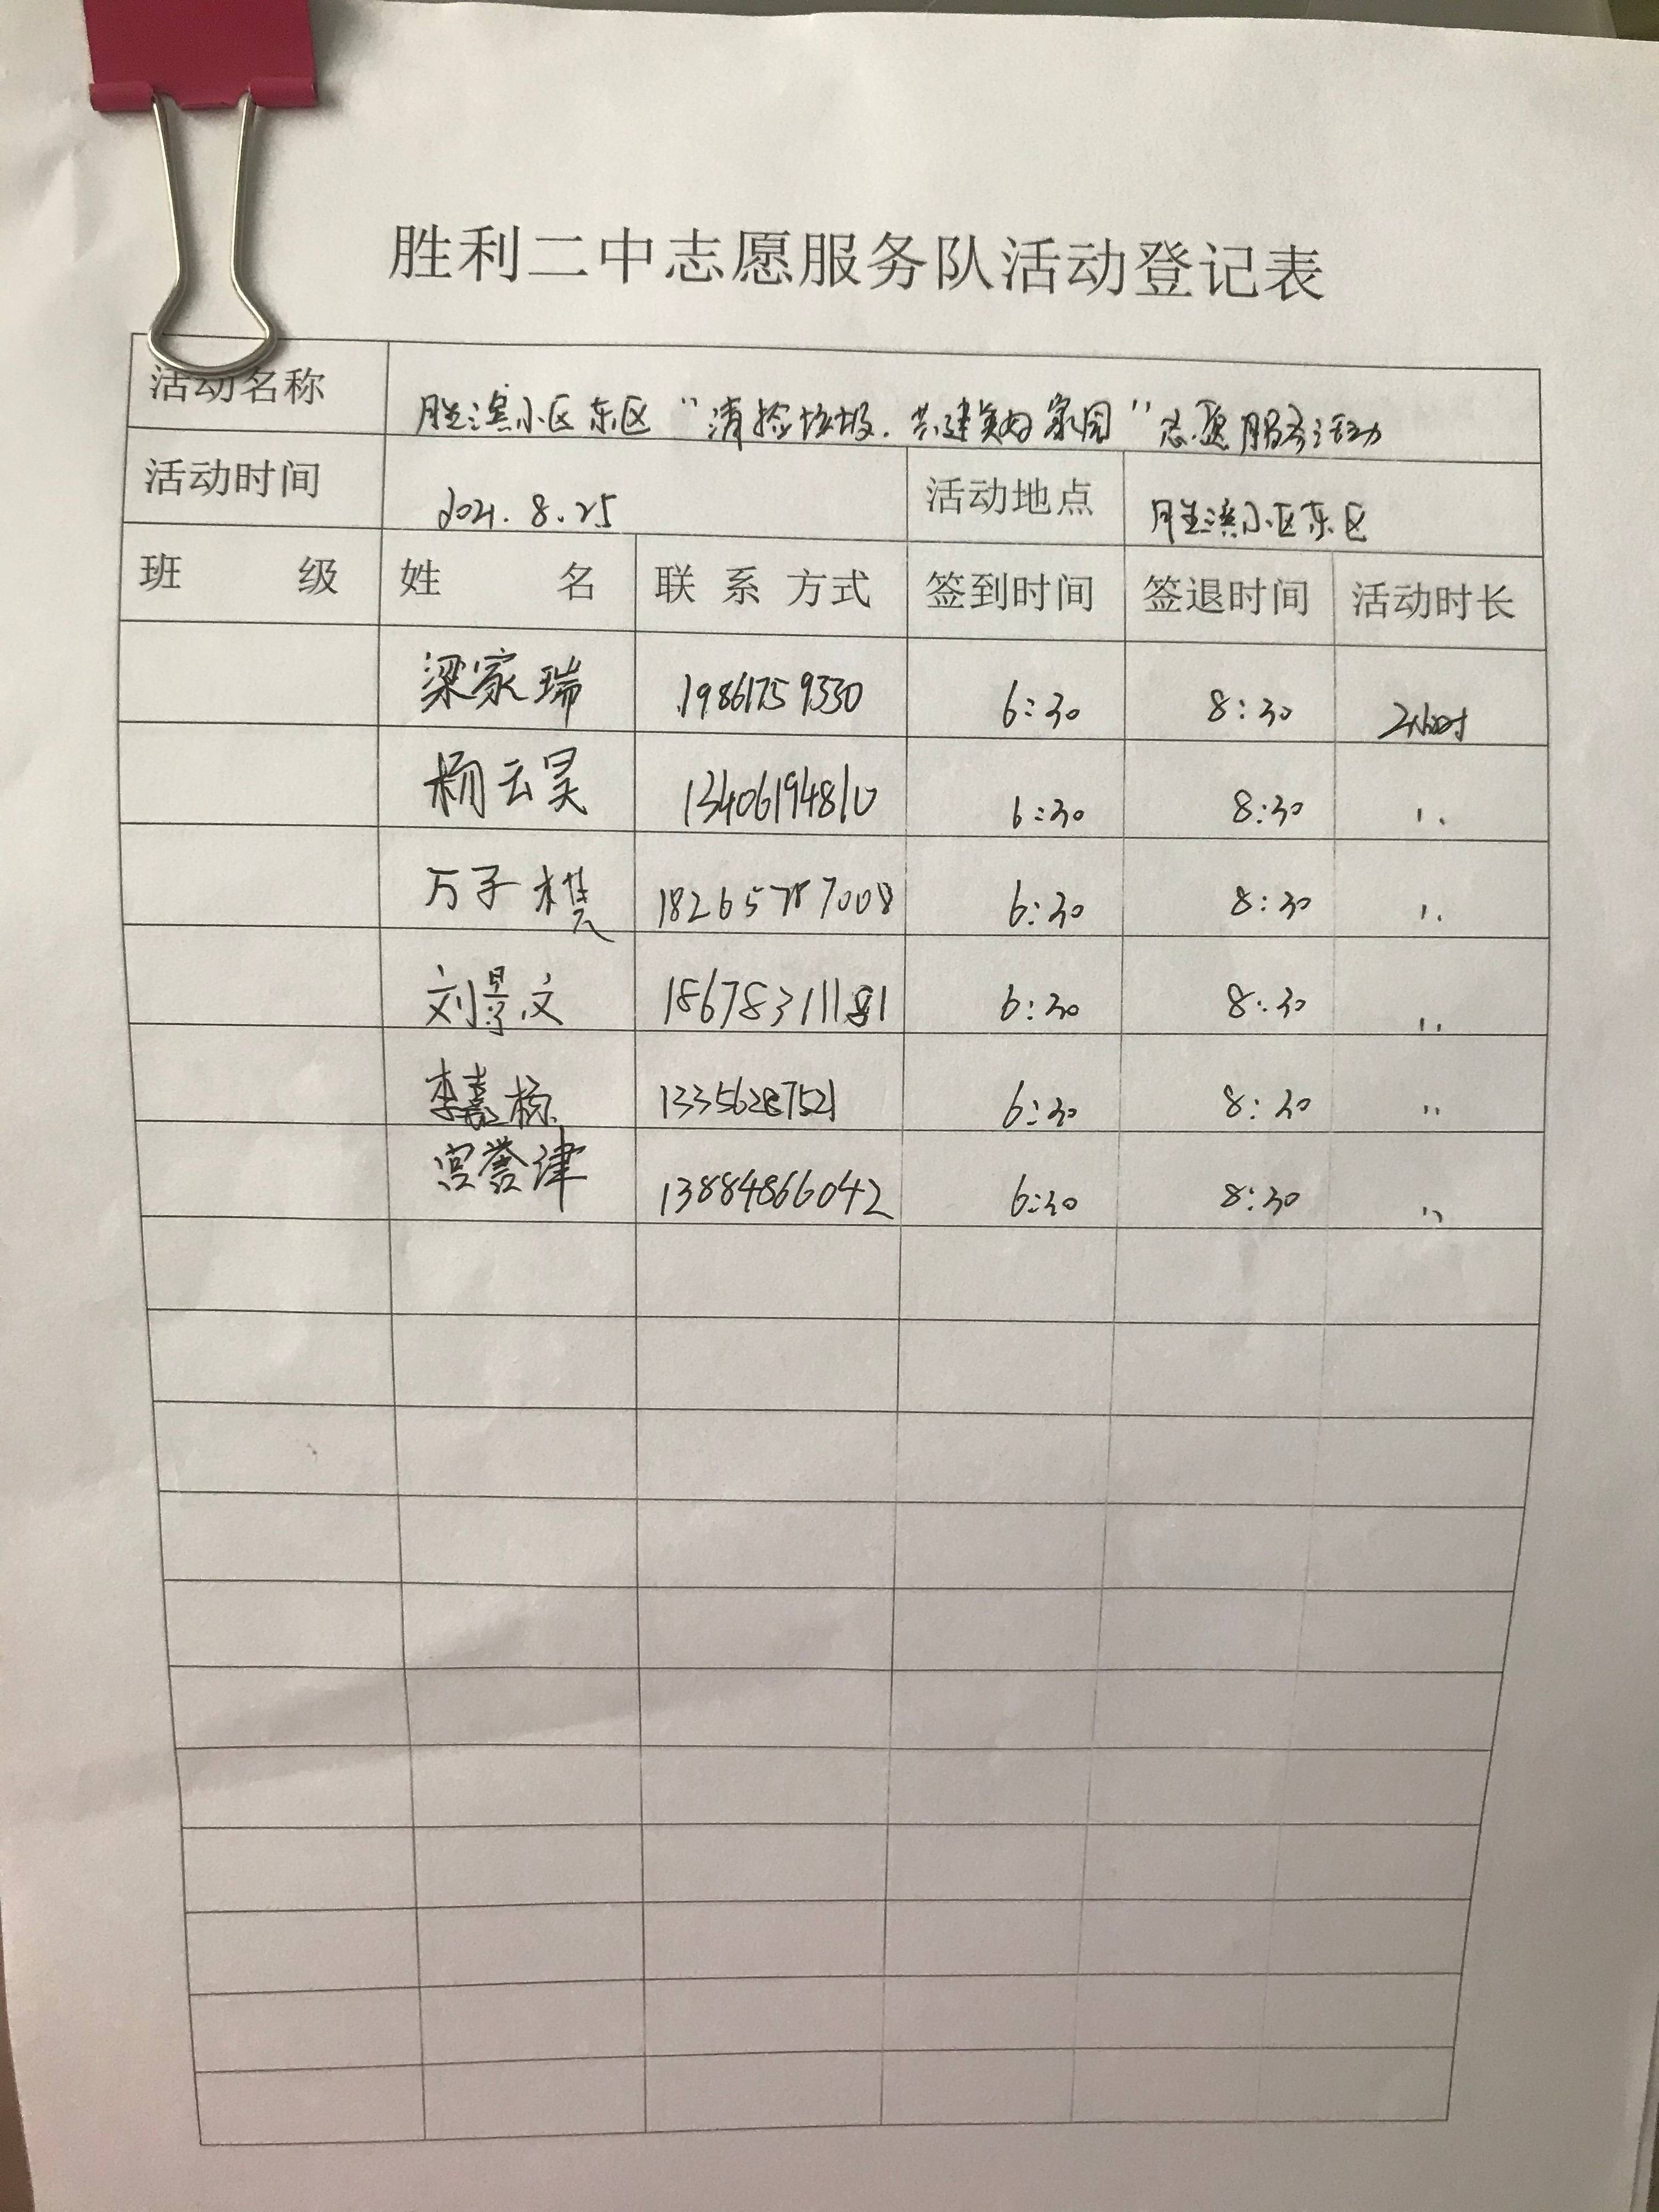 胜利二中志愿服务队活动登记表
活动名称 胜滨小区东区"清捡垃圾.共建美好家园"志愿服务活动
活动时间 2021.8.25 活动地点 胜滨小区东区
班 级 姓 名 联系方式 签到时间 签退时间 活动时长
梁家瑞 19861759330 6:30 8:30 2小时
杨云昊 13406194810 6:30 8:30 〃
万子 6:30 8:30 〃
刘景文 18678311181 6:30 8:30 〃
李嘉栋 13356287521 6:30 8:30 〃
宫誉津 13884866042 6:30 8:30 〃